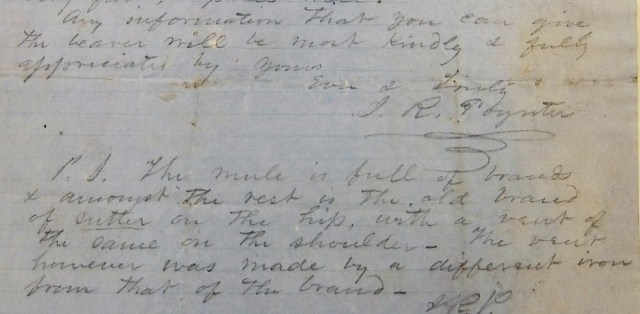 Any information that you can give
the bearer will be most kindly & fully
appreciated by yours
Ever & Truly
J. R. Poynter
P. S. The mule is full of brands
& amongst the rest is the old brand
of Sutter on the hip, with a vent of
the same on the shoulder - The vent
however was made by a different iron
from that of the brand -
J R P